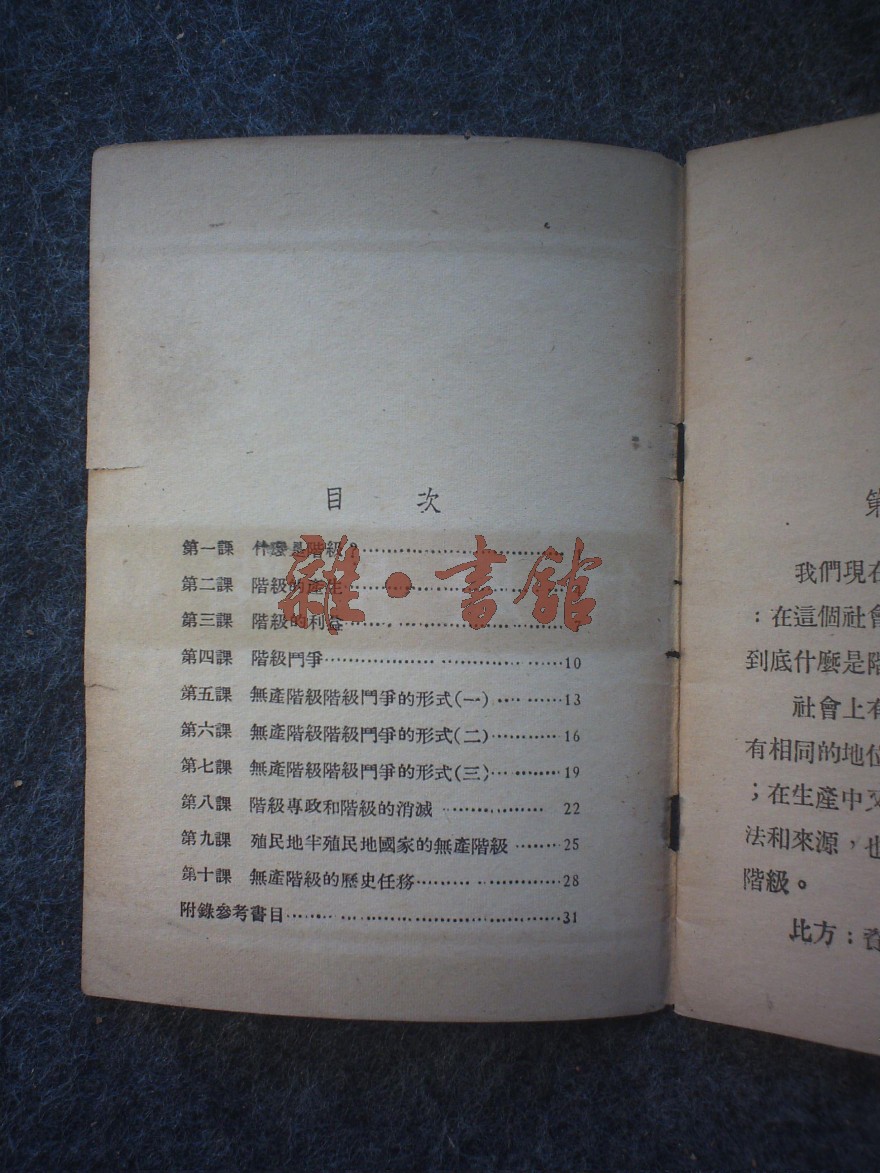 目 次
第一課 什麼是階級?
第二課 階級的產生
第三課 階級的利益
第四課 階級鬥爭 10
第五課 無產階級階級鬥爭的形式(一) 13
第六課 無產階級階級鬥爭的形式(二) 16
第七課 無產階級階級鬥爭的形式(三) 19
第八課 階級專政和階級的消滅 22
第九課 殖民地半殖民地國家的無產階級 25
第十課 無產階級的歷史任務 28
附錄參考書目 31
雜·書館
第
我們現在
:在這個社會
到底什麼是階
社會上有
有相同的地位
;在生產中
法和來源,也
階級。
比方: